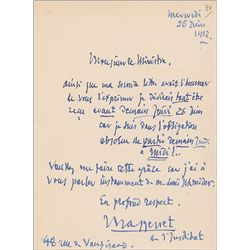 mercredi
26 Juin
1912
Monsieur le Ministre,
ainsi que ma seconde lettre avait l'honneur
de vous l'exprimer je désirais tant être
reçu avant demain Jeudi 26 Juin
car je suis dans l'obligation
absolue de partir demain Jeudi
à midi !..
Veuillez me faire cette grâce car j'ai à
vous parler instamment de m. Louis Schneider.
En profond respect.
Massenet
de l'Institut
48 rue de Vaugirard